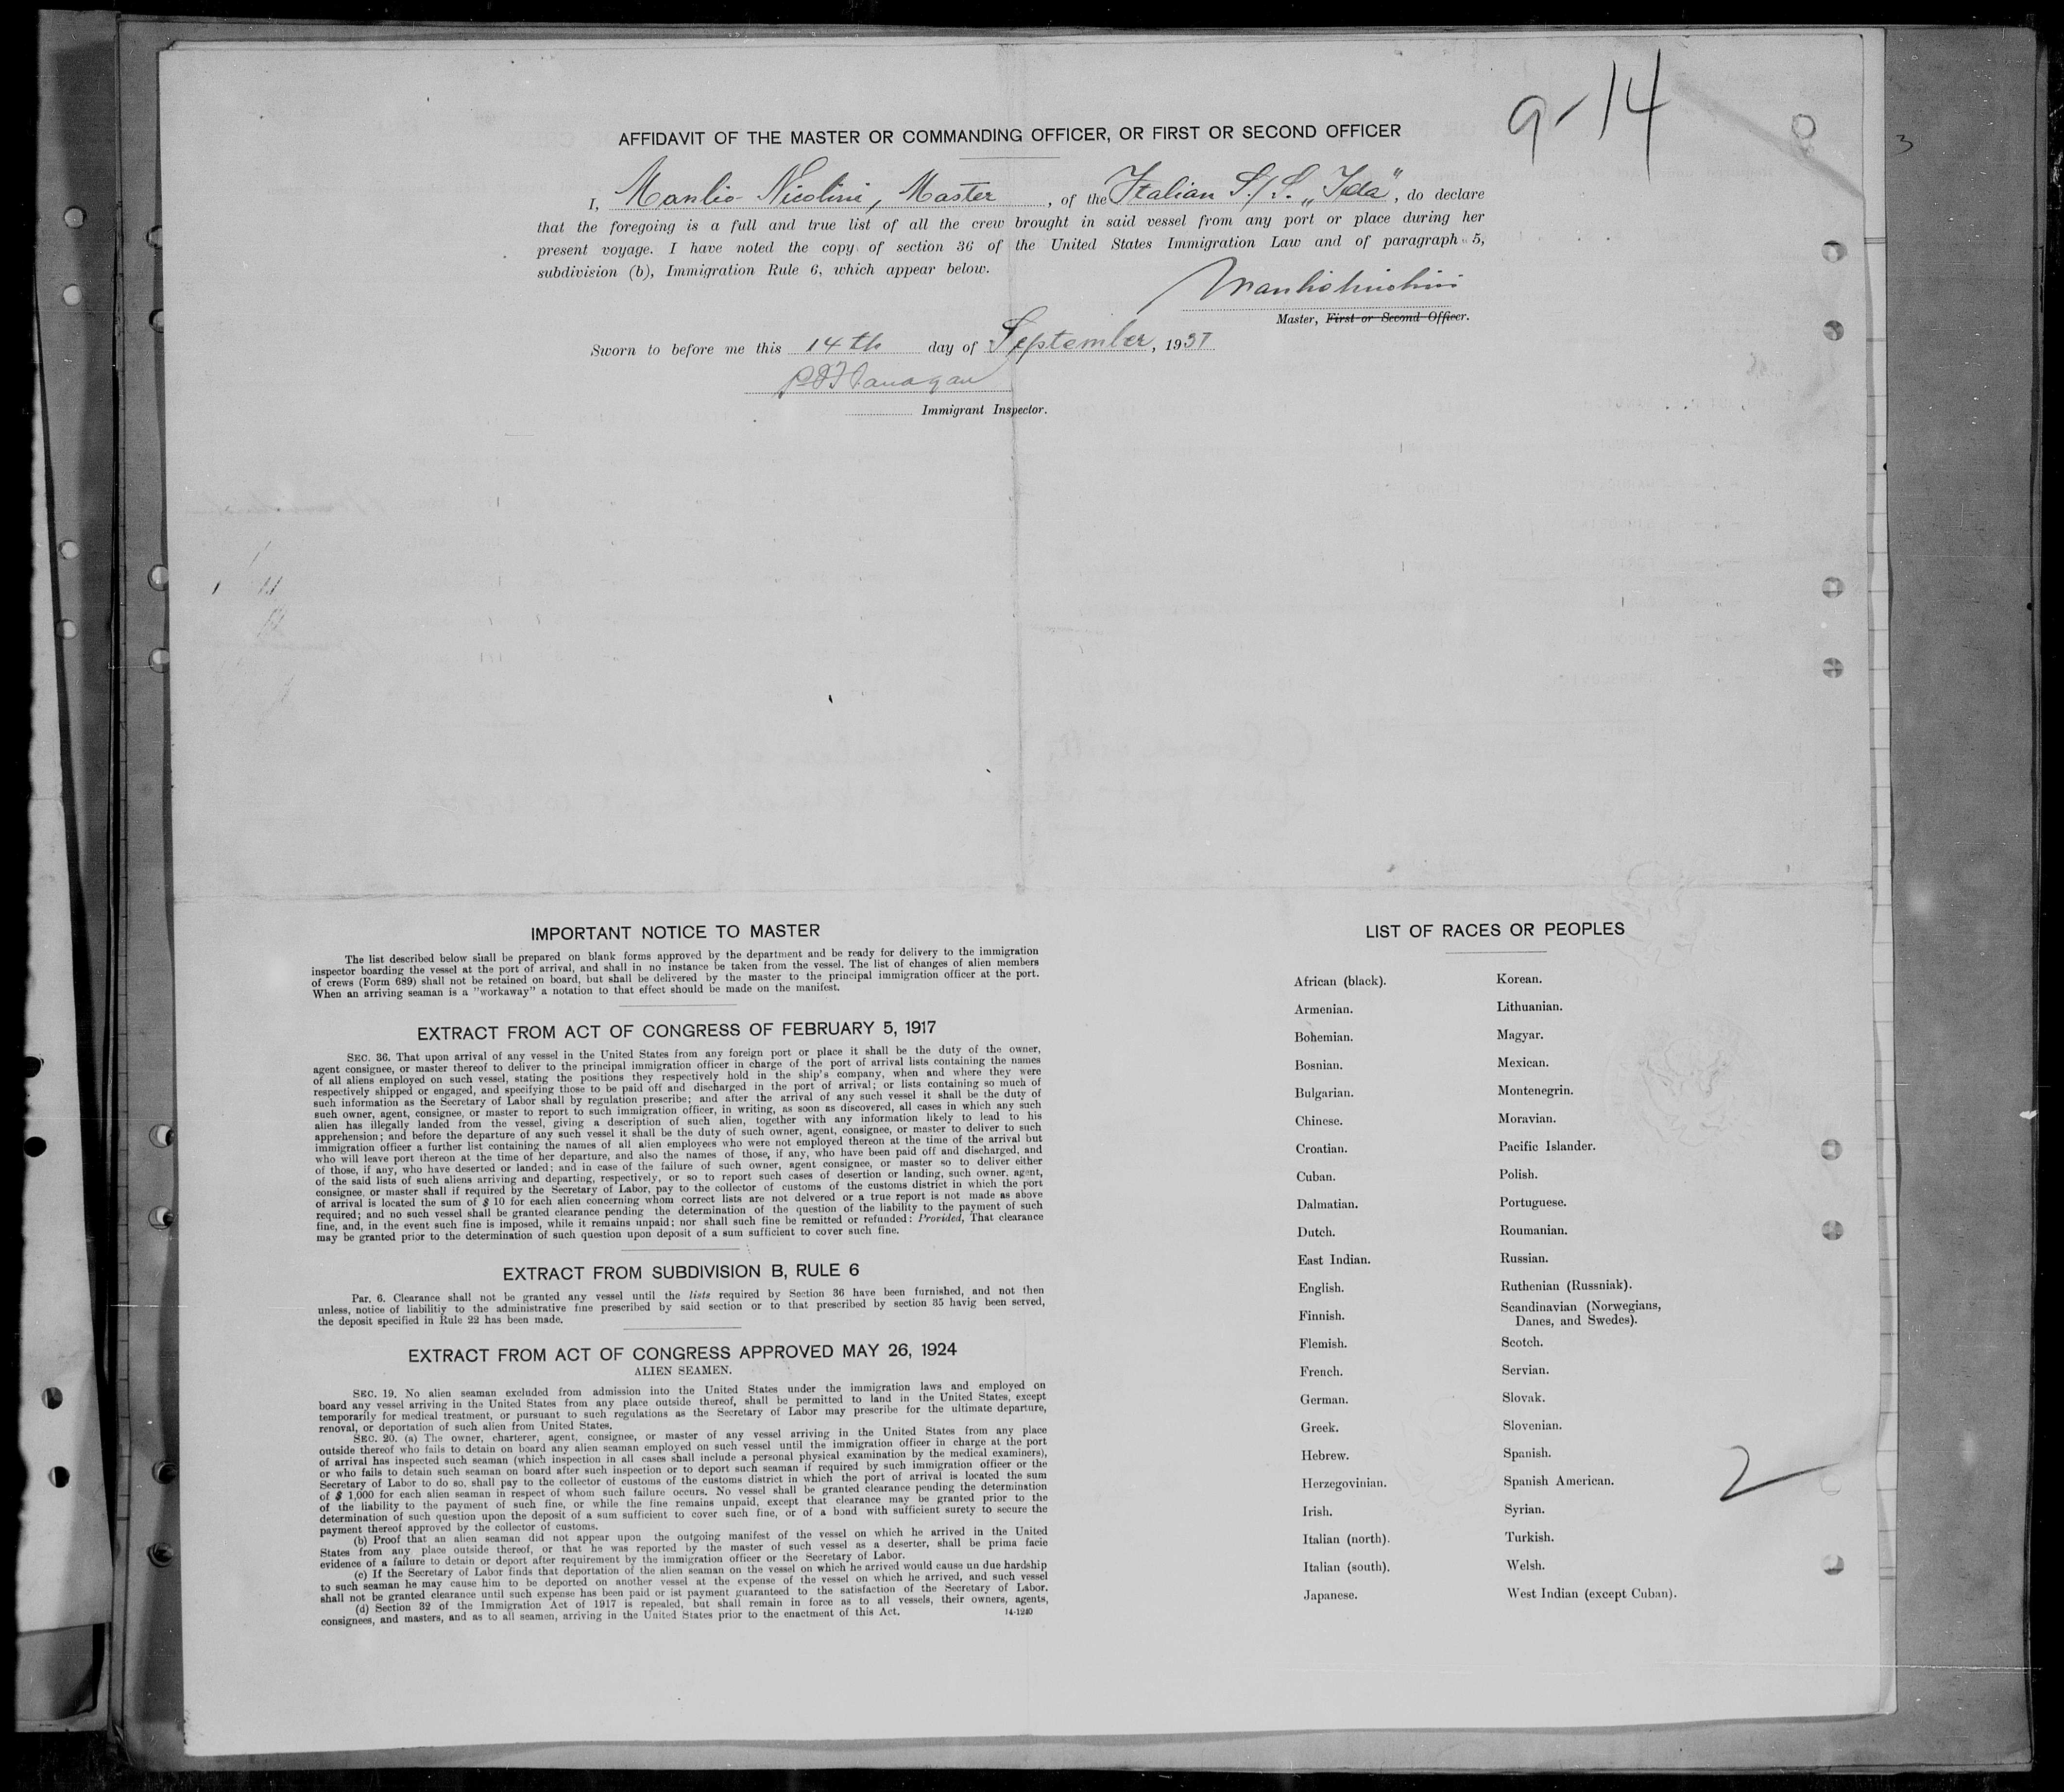 9-14
AFFIDAVIT OF THE MASTER OR COMMANDING OFFICER, OR FIRST OR SECOND OFFICER
I, Manlio Nicolini, Master, of the Italian S/S. „Ida", do declare
that the foregoing is a full and true list of all the crew brought in said vessel from any port or place during her
present voyage. I have noted the copy of section 36 of the United States Immigration Law and of paragraph 5,
subdivision (b), Immigration Rule 6, which appear below.
Manlio Nicolini
Master, First or Second Officer.
Sworn to before me this 14th day of September, 1937
Immigrant Inspector.
IMPORTANT NOTICE TO MASTER
The list described below shall be prepared on blank forms approved by the department and be ready for delivery to the immigration
inspector boarding the vessel at the port of arrival, and shall in no instance be taken from the vessel. The list of changes of alien members
of crews (Form 689) shall not be retained on board, but shall be delivered by the master to the principal immigration officer at the port.
When an arriving seaman is a "workaway" a notation to that effect should be made on the manifest.
EXTRACT FROM ACT OF CONGRESS OF FEBRUARY 5, 1917
SEC. 36. That upon arrival of any vessel in the United States from any foreign port or place it shall be the duty of the owner,
agent consignee, or master thereof to deliver to the principal immigration officer in charge of the port of arrival lists containing the names
of all aliens employed on such vessel, stating the positions they respectively hold in the ship's company, when and where they were
respectively shipped or engaged, and specifying those to be paid off and discharged in the port of arrival; or lists containing so much of
such information as the Secretary of Labor shall by regulation prescribe; and after the arrival of any such vessel it shall be the duty of
such owner, agent, consignee, or master to report to such immigration officer, in writing, as soon as discovered, all cases in which any such
alien has illegally landed from the vessel, giving a description of such alien, together with any information likely to lead to his
apprehension; and before the departure of any such vessel it shall be the duty of such owner, agent, consignee, or master to deliver to such
immigration officer a further list containing the names of all alien employees who were not employed thereon at the time of the arrival but
who will leave port thereon at the time of her departure, and also the names of those, if any, who have been paid off and discharged, and
of those, if any, who have deserted or landed; and in case of the failure of such owner, agent consignee, or master so to deliver either
of the said lists of such aliens arriving and departing, respectively, or so to report such cases of desertion or landing, such owner, agent,
consignee, or master shall if required by the Secretary of Labor, pay to the collector of customs of the customs district in which the port
of arrival is located the sum of $ 10 for each alien concerning whom correct lists are not delvered or a true report is not made as above
required; and no such vessel shall be granted clearance pending the determination of the question of the liability to the payment of such
fine, and, in the event such fine is imposed, while it remains unpaid; nor shall such fine be remitted or refunded: Provided, That clearance
may be granted prior to the determination of such question upon deposit of a sum sufficient to cover such fine.
EXTRACT FROM SUBDIVISION B, RULE 6
Par. 6. Clearance shall not be granted any vessel until the lists required by Section 36 have been furnished, and not then
unless, notice of liabilitiy to the administrative fine prescribed by said section or to that prescribed by section 35 havig been served,
the deposit specified in Rule 22 has been made.
EXTRACT FROM ACT OF CONGRESS APPROVED MAY 26, 1924
ALIEN SEAMEN.
SEC. 19. No alien seaman excluded from admission into the United States under the immigration laws and employed on
board any vessel arriving in the United States from any place outside thereof, shall be permitted to land in the United States, except
temporarily for medical treatment, or pursuant to such regulations as the Secretary of Labor may prescribe for the ultimate departure,
renoval, or deportation of such alien from United States.
SEC. 20. (a) The owner, charterer, agent, consignee, or master of any vessel arriving in the United States from any place
outside thereof who fails to detain on board any alien seaman employed on such vessel until the immigration officer in charge at the port
of arrival has inspected such seaman (which inspection in all cases shall include a personal physical examination by the medical examiners),
or who fails to detain such seaman on board after such inspection or to deport such seaman if required by such immigration officer or the
Secretary of Labor to do so, shall pay to the collector of customs of the customs district in which the port of arrival is located the sum
of $ 1,000 for each alien seaman in respect of whom such failure occurs. No vessel shall be granted clearance pending the determination
of the liability to the payment of such fine, or while the fine remains unpaid, except that clearance may be granted prior to the
determination of such question upon the deposit of a sum sufficient to cover such fine, or of a bond with sufficient surety to secure the
payment thereof approved by the collector of customs.
(b) Proof that an alien seaman did not appear upon the outgoing manifest of the vessel on which he arrived in the United
States from any place outside thereof, or that he was reported by the master of such vessel as a deserter, shall be prima facie
evidence of a failure to detain or deport after requirement by the immigration officer or the Secretary of Labor.
(c) If the Secretary of Labor finds that deportation of the alien seaman on the vessel on which he arrived would cause un due hardship
to such seaman he may cause him to be deported on another vessel at the expense of the vessel on which he arrived, and such vessel
shall not be granted clearance until such expense has been paid or ist payment guaranteed to the satisfaction of the Secretary of Labor.
(d) Section 32 of the Immigration Act of 1917 is repealed, but shall remain in force as to all vessels, their owners, agents,
consignees, and masters, and as to all seamen, arriving in the United States prior to the enactment of this Act. 14-1240
LIST OF RACES OR PEOPLES
African (black).
Armenian.
Bohemian.
Bosnian.
Bulgarian.
Chinese.
Croatian.
Cuban.
Dalmatian.
Dutch.
East Indian.
English.
Finnish.
Flemish.
French.
German.
Greek.
Hebrew.
Herzegovinian.
Irish.
Italian (north).
Italian (south).
Japanese.
Korean.
Lithuanian.
Magyar.
Mexican.
Montenegrin.
Moravian.
Pacific Islander.
Polish.
Portuguese.
Roumanian.
Russian.
Ruthenian (Russniak).
Scandinavian (Norwegians,
Danes, and Swedes).
Scotch.
Servian.
Slovak.
Slovenian.
Spanish.
Spanish American.
Syrian.
Turkish.
Welsh.
West Indian (except Cuban).
2
3